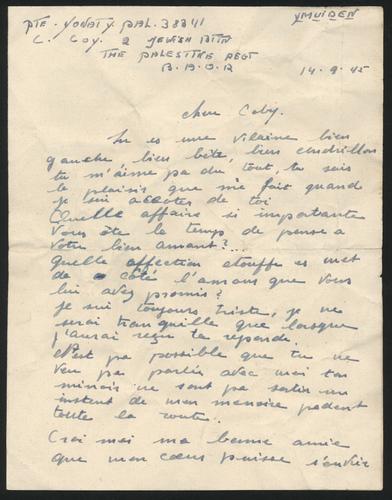 PTE. YONATY. PAL. 38341
YMUIDEN
C. COY. 2 JEWISH BTTN
THE PALESTINE REGT
B.A.O.R
14.9.45
cher Coby.
Tu es une vilaine bien
gauche bien bête, bien cendrillon
tu m'aime pa du tout, tu sais
le plaisir que me fait quand
je sui de toi
Quelle affaire si importante
vous ôte le temps de pense a
votre bien amant?...
quelle affection etouffe es met
de coté l'amour que vous
lui avez promis?
je sui toujours triste, je ne
serai tranquille que lorsque
j'aurai reçu ta reponde.
n'Est pa possible que tu ne
veu pa parlés avec moi ton
minois ne sont pa sortir un
instent de mon memoire pedent
toute la route.
Croi moi ma bonne amie
que mon cœur puisse s'ouvrir